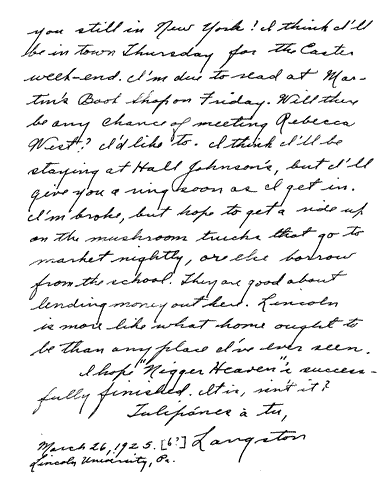 you still in New York? I think I'll
be in town Thursday for the Easter
week-end. I'm due to read at Mar-
tin's Book Shop on Friday. Will there
be any chance of meeting Rebecca
West? I'd like to. I think I'll be
staying at Hall Johnson's, but I'll
give you a ring soon as I get in.
I'm broke, but hope to get a ride up
on the mushroom trucks that go to
market nightly, or else borrow
from the school. They are good about
lending money out here. Lincoln
is more like what home ought to
be than any place I've ever seen.
I hope "Nigger Heaven" is success-
fully finished. It is, isn't it?
Tulipánes à tu,
Langston
March 26, 1925. [6?]
Lincoln University, Pa.